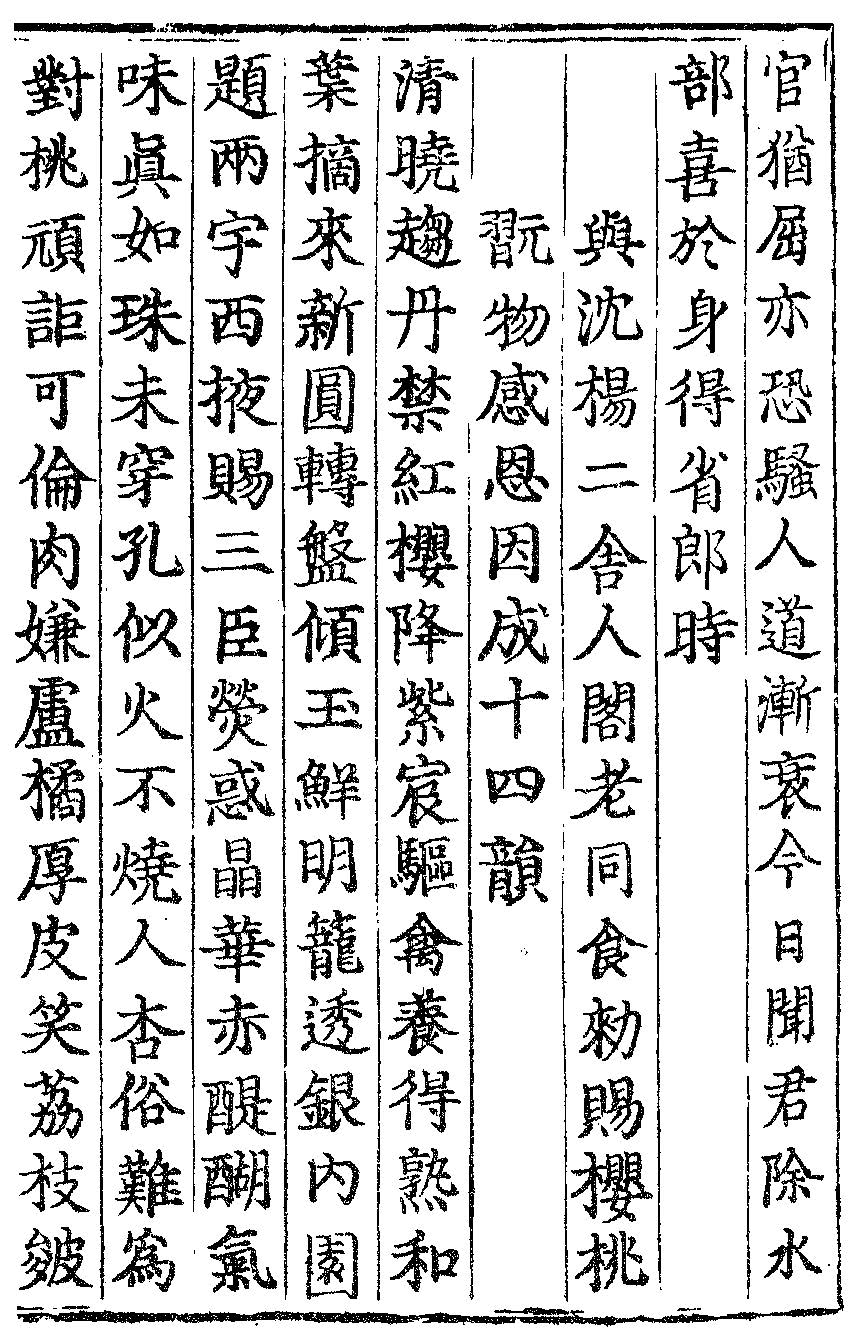 官猶屈亦恐騷人道漸衰今日聞君除水
部喜於身得省郎時
與沈楊二舍人閣老同食勑賜櫻桃
翫物感恩因成十四韻
清曉趨丹禁紅櫻降紫宸驅禽養得熟和
葉摘來新圓轉盤傾玉鮮明籠透銀內園
題兩字西掖賜三臣熒惑晶華赤醍醐氣
味眞如珠未穿孔似火不燒人杏俗難爲
對桃頑詎可倫肉嫌盧橘厚皮笑荔枝皴